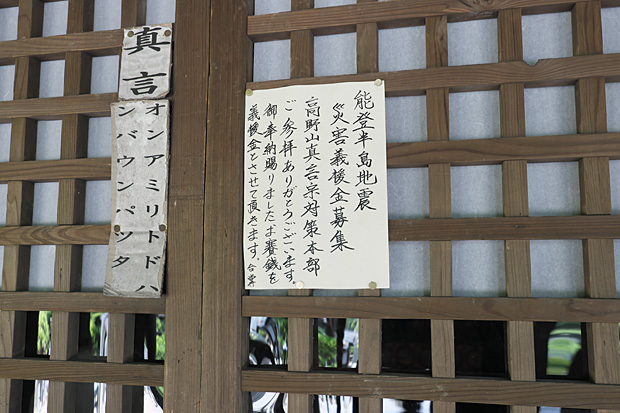 真言
オンアミリトドハ
ンバウンパツタ
能登半島地震
災害義援金募集
高野山真言宗対策本部
ご参拝ありがとうございます。
御奉納賜りましたお賽銭を
義援金とさせて頂きます。合掌